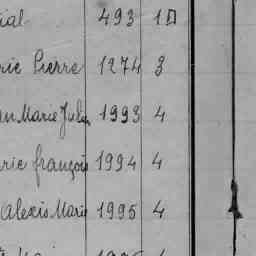 ial 493 1
rie Pierre 1274 3
an Marie Julien 1993 4
arie françois 1994 4
Alexis Marie 1995 4